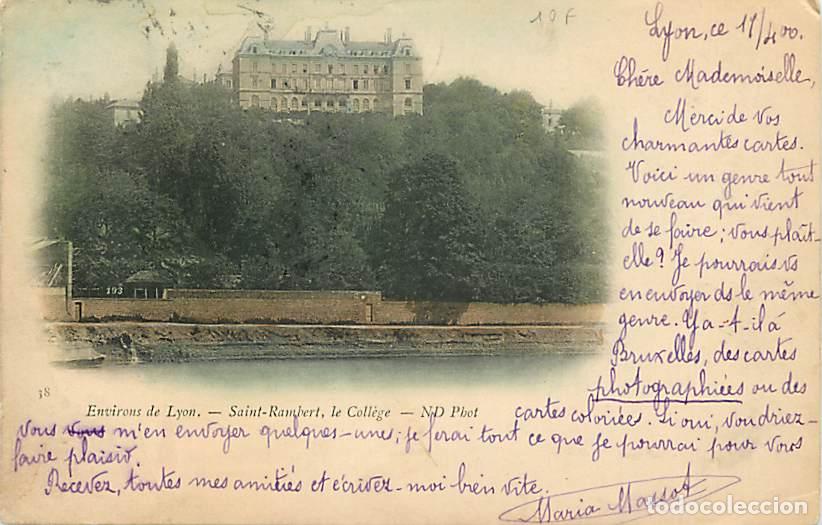 10F
Lyon, ce 11/4 00.
Chère Mademoiselle,
Merci de vos
charmantes cartes.
Voici un genre tout
nouveau qui vient
de se faire; vous plaît-
elle? Je pourrais vs
en envoyer ds le même
genre. Y a-t-il à
Bruxelles, des cartes
photographiées ou des
cartes coloriées. Si oui, voudriez-
vous vous m'en envoyer quelques-unes; je ferai tout ce que je pourrai pour vous
faire plaisir.
Recevez, toutes mes amitiés et écrivez-moi bien vite.
Maria Massot
193
38
Environs de Lyon. — Saint-Rambert, le Collège — ND Phot
todocoleccion